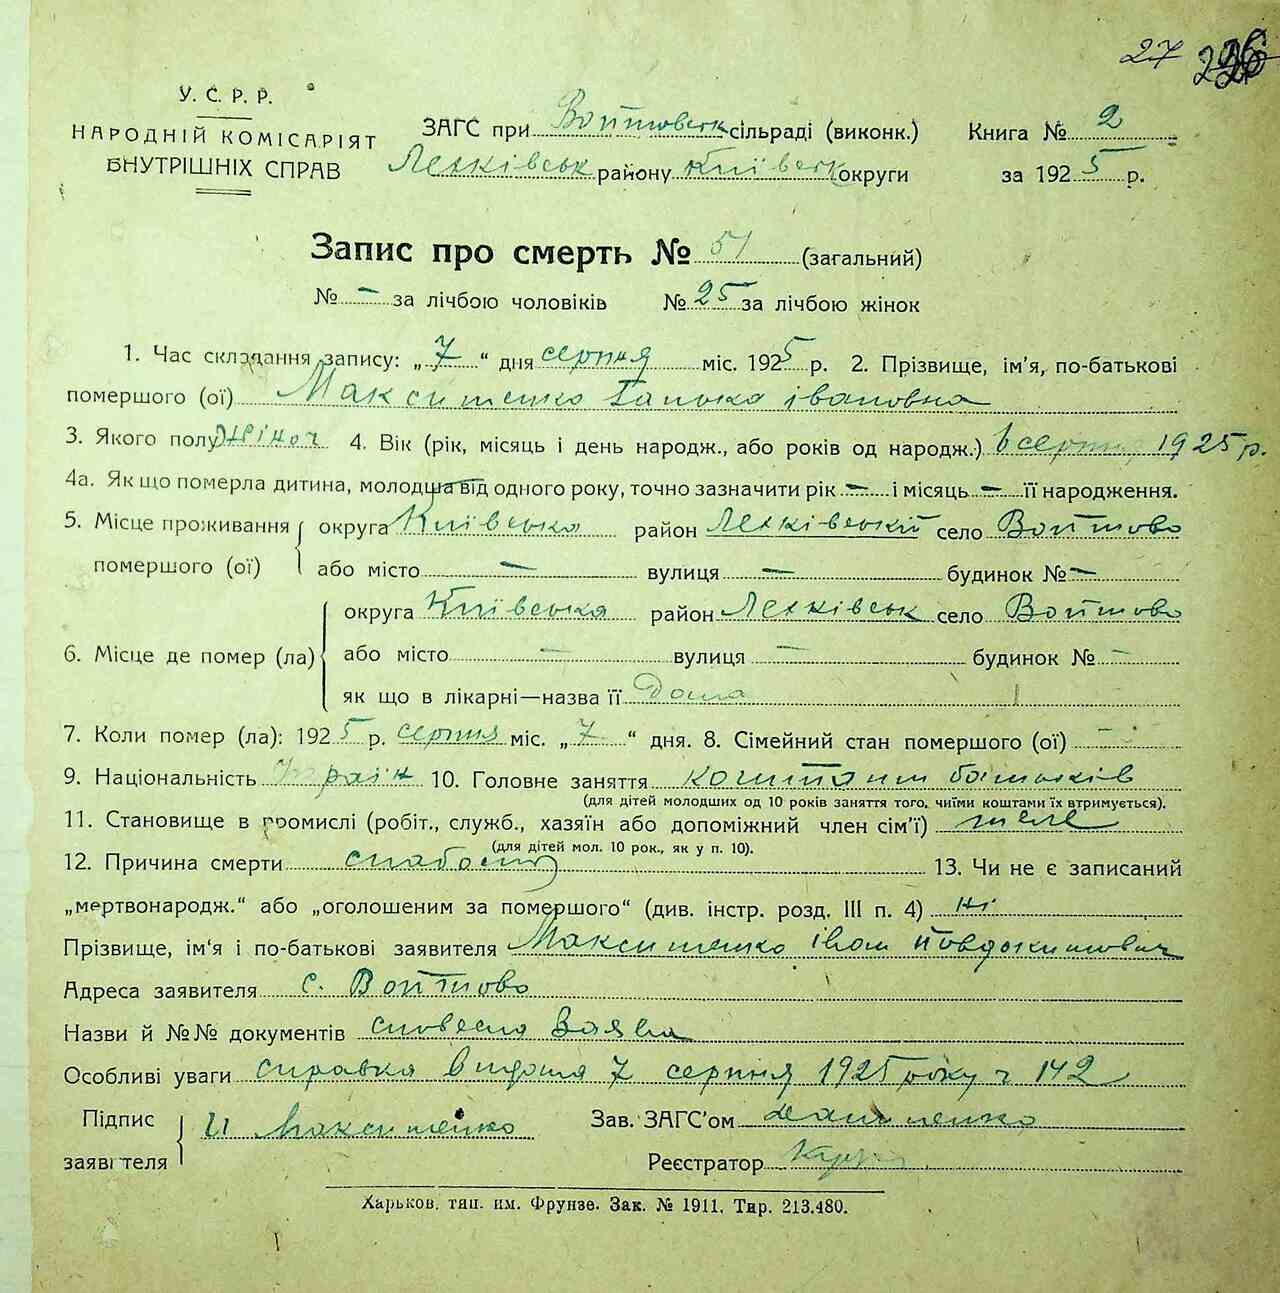 27
У. С. Р. Р.
НАРОДНІЙ КОМІСАРІЯТ
ВНУТРІШНІХ СПРАВ
ЗАГС при Войтовськ сільраді (виконк.)
району Київськ округи
Книга № 2
за 1925 р.
Запис про смерть № 51 (загальний)
№ — за лічбою чоловіків № 25 за лічбою жінок
1. Час складання запису: „7“ дня серпня міс. 1925 р. 2. Прізвище, ім'я, по-батькові
помершого (ої) Максименко Ганька івановна
3. Якого полу жіноч 4. Вік (рік, місяць і день народж., або років од народж.) серпня 1925 р.
4а. Як що померла дитина, молодша від одного року, точно зазначити рік — і місяць — її народження.
5. Місце проживання помершого (ої) округа Київська район село Войтово
або місто — вулиця — будинок № —
6. Місце де помер (ла) округа Київська район село Войтово
або місто — вулиця — будинок № —
як що в лікарні—назва її Дома
7. Коли помер (ла): 1925 р. серпня міс. „7“ дня. 8. Сімейний стан помершого (ої) —
9. Національність Україн 10. Головне заняття коштом батьків
(для дітей молодших од 10 років заняття того, чиїми коштами їх втримується).
11. Становище в промислі (робіт., служб., хазяїн або допоміжний член сім'ї)
(для дітей мол. 10 рок., як у п. 10).
12. Причина смерти слабость 13. Чи не є записаний
„мертвонародж.“ або „оголошеним за помершого“ (див. інстр. розд. III п. 4) ні
Прізвище, ім'я і по-батькові заявителя Максименко Іван Йовдокимович
Адреса заявителя с. Войтово
Назви й №№ документів словесна Заява
Особливі уваги справка видана 7 серпня 1925 року ч 142
Підпис заявителя И Максименко
Зав. ЗАГС'ом
Реєстратор
Харьков. тип. им. Фрунзе. Зак. № 1911. Тир. 213.480.